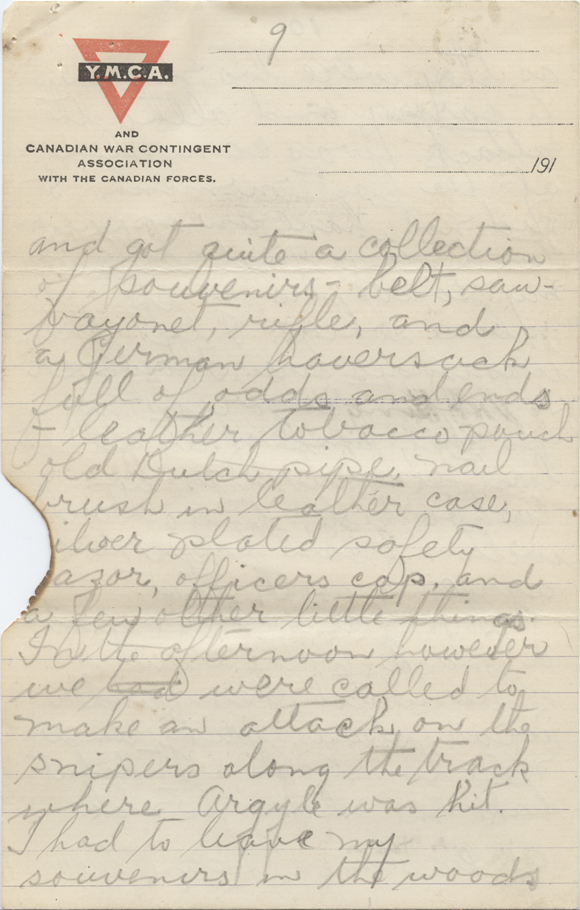 9
Y.M.C.A.
AND
CANADIAN WAR CONTINGENT
ASSOCIATION
WITH THE CANADIAN FORCES.
191
and got quite a collection
of souvenirs - belt, saw-
bayonet, rifle, and
a German haversack
full of odds and ends
- leather tobacco pouch
old Dutch pipe, nail
brush in leather case,
ilver plated safety
azor, officers cap, and
a few other little things.
In the afternoon however
we had were called to
make an attack on the
snipers along the track
where Argyle was hit.
I had to leave my
souvenirs in the woods